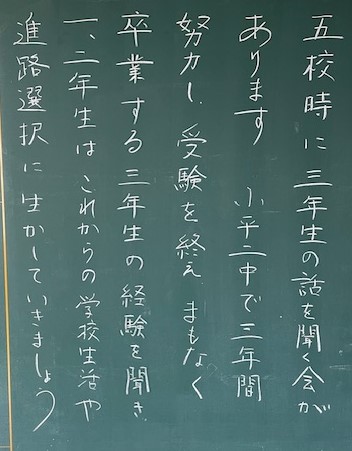 五校時に三年生の話を聞く会が
あります　小平二中で三年間
努力し、受験を終え、まもなく
卒業する三年生の経験を聞き
一、二年生はこれからの学校生活や
進路選択に生かしていきましょう